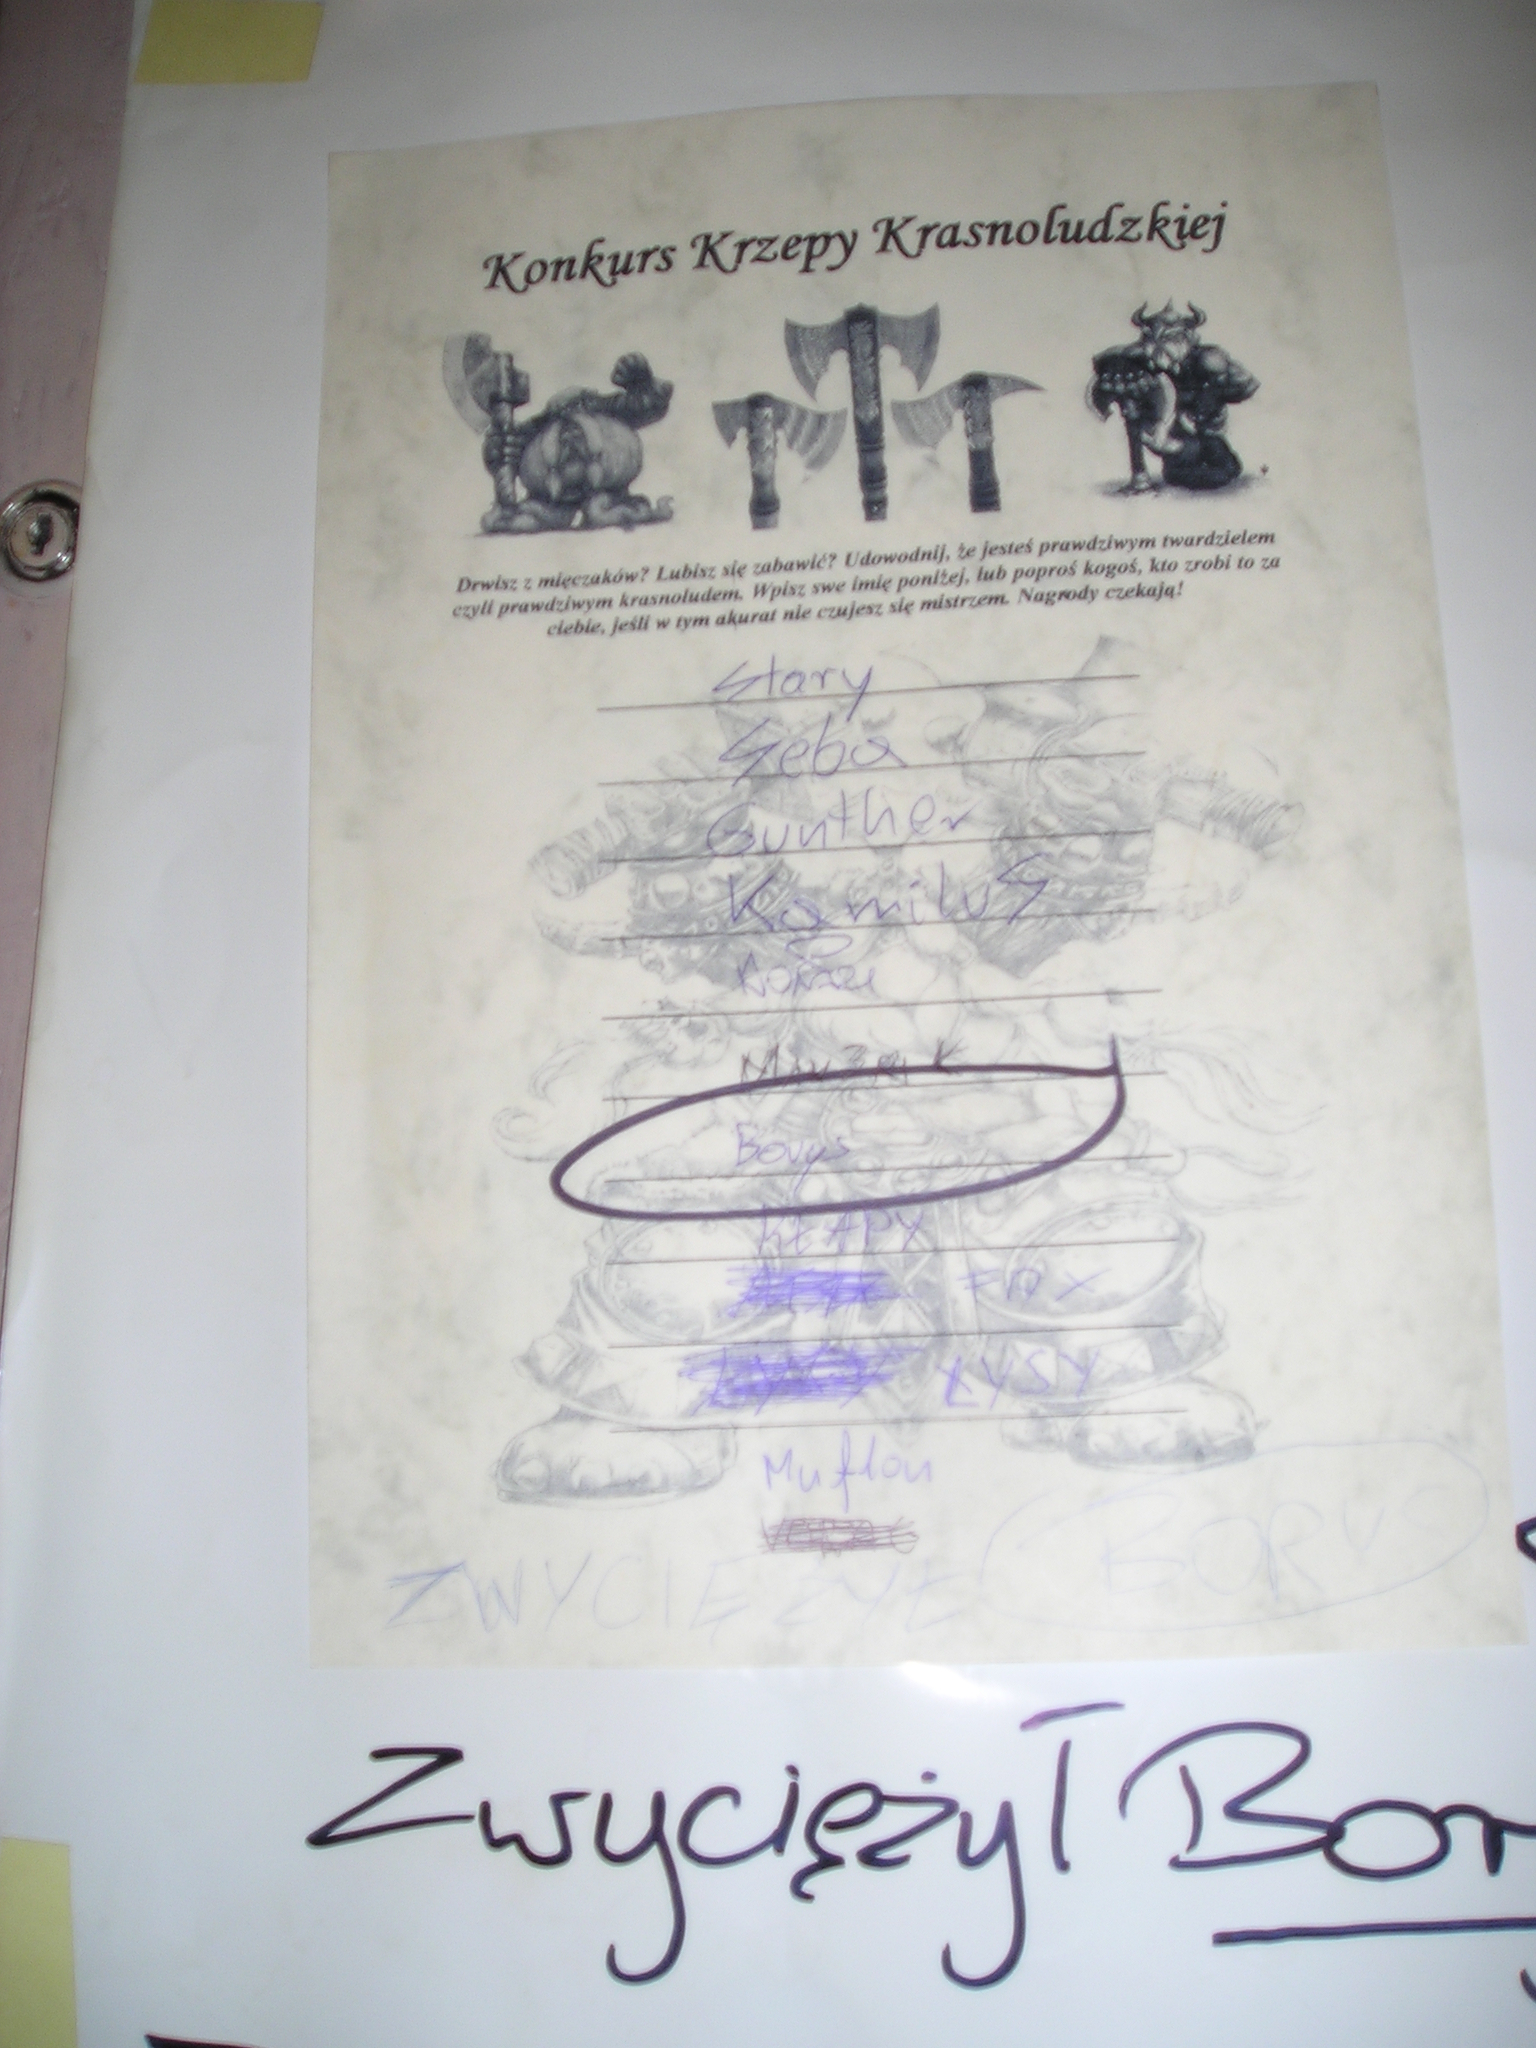 Konkurs Krzepy Krasnoludzkiej
Drwisz z mięczaków? Lubisz się zabawić? Udowodnij, że jesteś prawdziwym twardzielem
czyli prawdziwym krasnoludem. Wpisz swe imię poniżej, lub poproś kogoś, kto zrobi to za
ciebie, jeśli w tym akurat nie czujesz się mistrzem. Nagrody czekają!
Stary
Seba
Gunther
Kamilus
Borys
KŁAPY
FOX
ŁYSY
Muflon
ZWYCIĘŻYŁ BORYS
Zwyciężył Bory